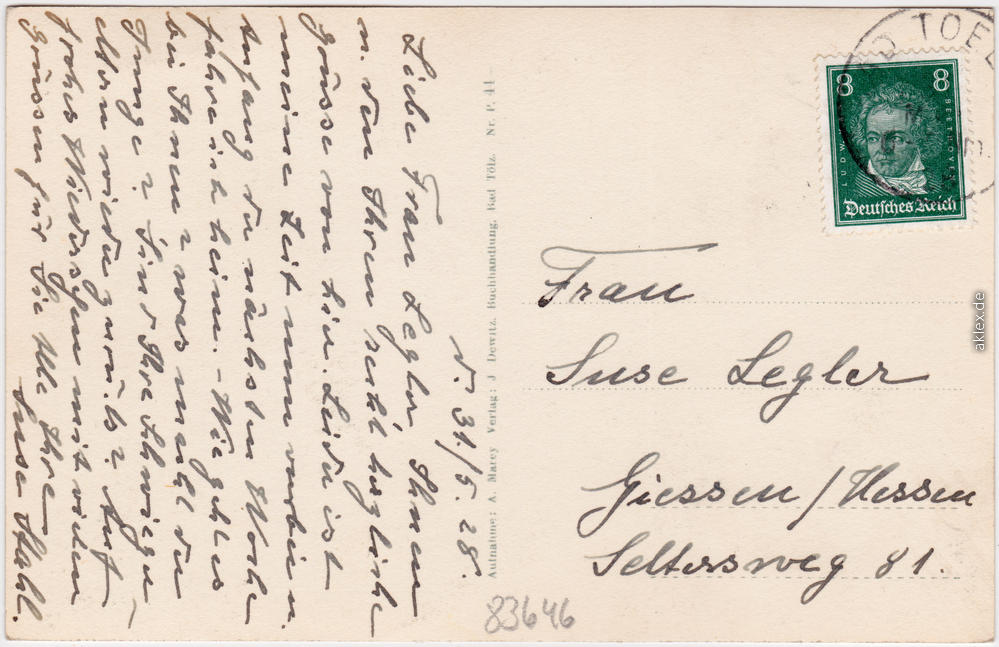 d. 31./5. 28.
Liebe Frau Legler, Ihnen
u. den Ihren recht herzliche
Grüsse von hier. Leider ist
meine Zeit nun vorbei u.
Anfang der nächsten Woche
fahre ich heim. – Wie geht es
bei Ihnen? was macht der
Junge? Sind Ihre Schwieger-
eltern wieder zurück? Auf
frohes Wiedersehen mit vielen
Grüssen für Sie Alle Ihre
Suse Stahl.
Aufnahme: A. Marcy Verlag: J Dewitz, Buchhandlung, Bad Tölz. Nr. P. 41
BAD TOEL
8 8
LUDW BEETHOVEN
Deutsches Reich
Frau
Suse Legler
Giessen / Hessen
Seltersweg 81.
83646
aklex.de